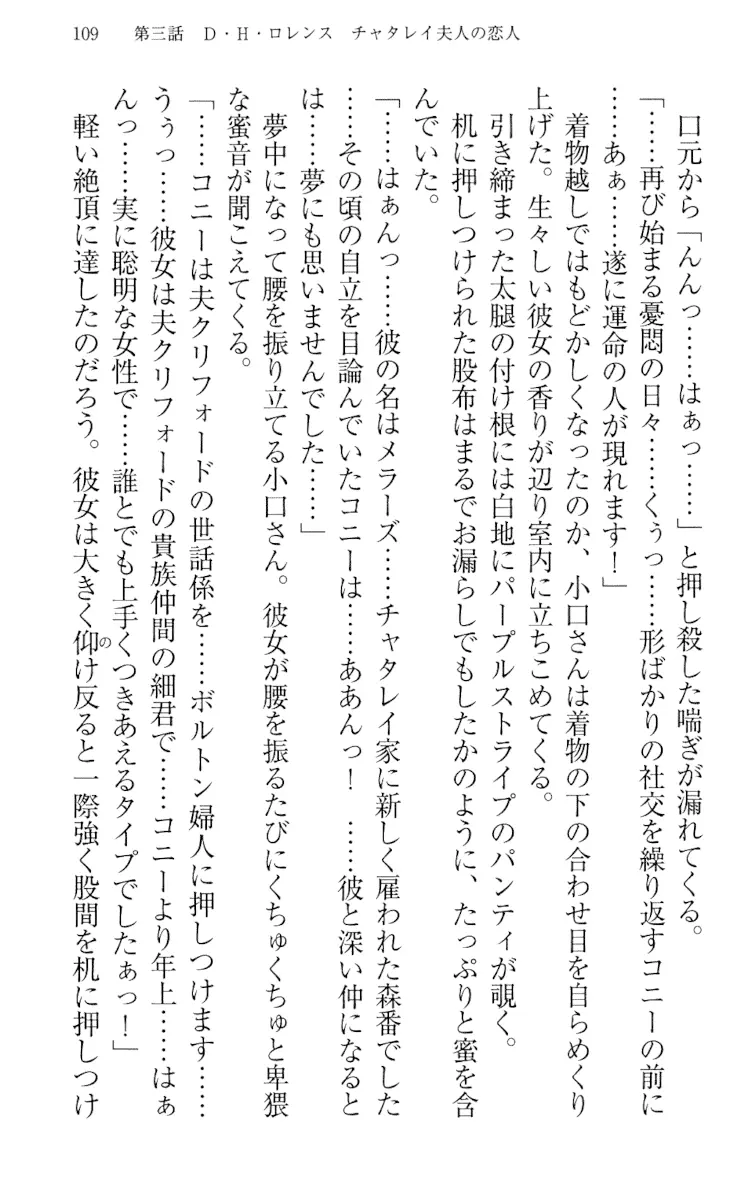 109　第三話　D・H・ロレンス　チャタレイ夫人の恋人
口元から「んんっ……はぁっ……」と押し殺した喘ぎが漏れてくる。
「……再び始まる憂悶の日々……くぅっ……形ばかりの社交を繰り返すコニーの前に
……あぁ……遂に運命の人が現れます！」
着物越しではもどかしくなったのか、小口さんは着物の下の合わせ目を自らめくり
上げた。生々しい彼女の香りが辺り室内に立ちこめてくる。
引き締まった太腿の付け根には白地にパープルストライプのパンティが覗く。
机に押しつけられた股布はまるでお漏らしでもしたかのように、たっぷりと蜜を含
んでいた。
「……はぁんっ……彼の名はメラーズ……チャタレイ家に新しく雇われた森番でした
……その頃の自立を目論んでいたコニーは……ああんっ！　……彼と深い仲になると
は……夢にも思いませんでした……」
夢中になって腰を振り立てる小口さん。彼女が腰を振るたびにくちゅくちゅと卑猥
な蜜音が聞こえてくる。
「……コニーは夫クリフォードの世話係を……ボルトン婦人に押しつけます……
うぅっ……彼女は夫クリフォードの貴族仲間の細君で……コニーより年上……はぁ
んっ……実に聡明な女性で……誰とでも上手くつきあえるタイプでしたぁっ！」
軽い絶頂に達したのだろう。彼女は大きく仰の け反ると一際強く股間を机に押しつけ